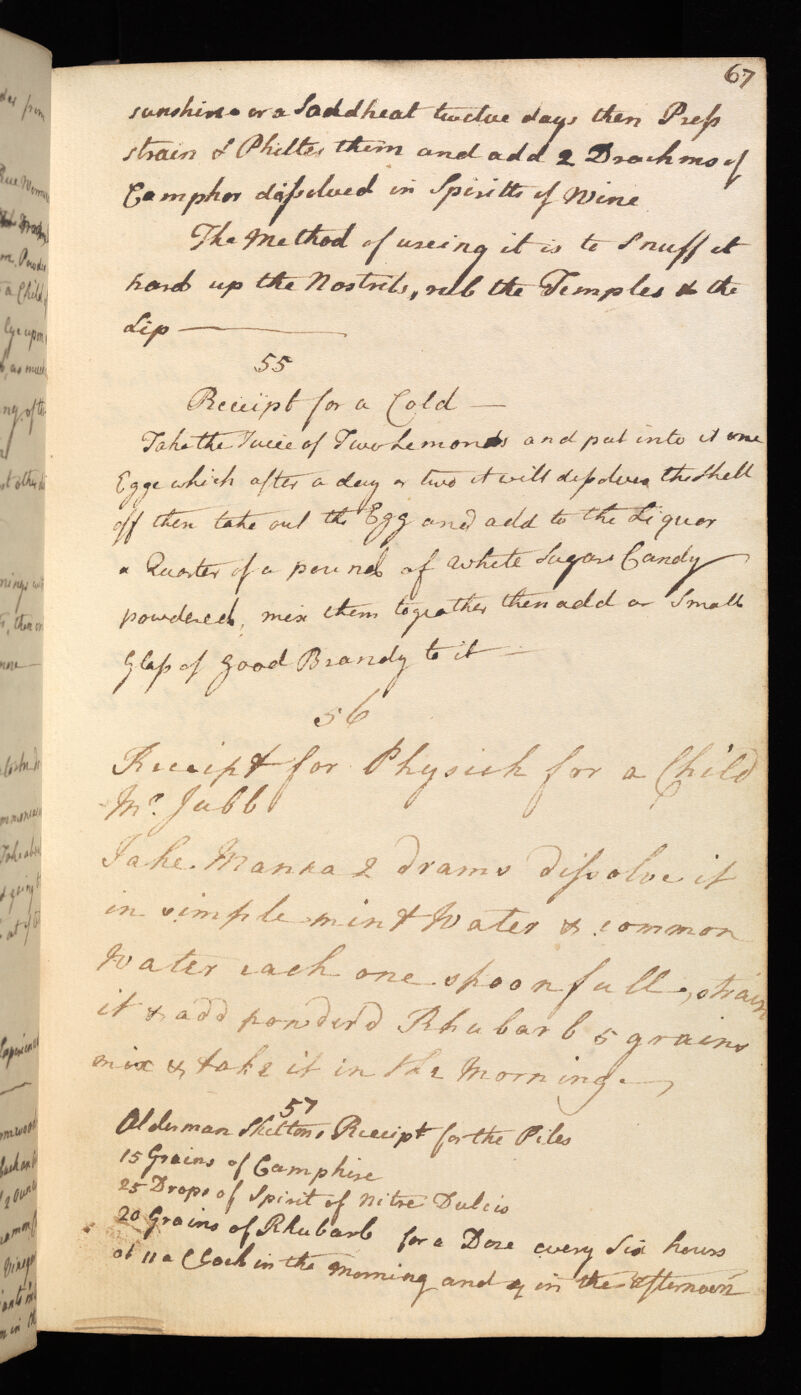 67
sunshine or a Saddheat twelve days then Press
strain & Philter them and add 2 Drachms of
Camphor dissolved in Spiritts of Wine
The Method of useing it is to Snuff it
hard up the Nostrils, rub the Temples & the
Lip
55
Receipt for a Cold
Take the Juice of Two Lemonds and put into it one
Egge which after a day or two it will desolve the Shell
off then take out the Egg and add to the Liquor
a Quarter of a pound of White Sugar Candy
powdered, mix them togeather then add a Small
Glass of good Brandy to it
56
Receipt for Physick for a Child
Mr. Jubb
Take Manna 2 drams dissolve it
in simple mint Water & common
Water each one spoonfull, strain
it & add powder'd Rhubarb 5 grains
mix & take it in the Morning.
57
Alderman Skeltons Receipt for the Piles
15 Grains of Camphire
25 Drops of Spirit of Nitre Dulcis
20 Grains of Rhubarb for a Doze every Six hours
at 11 a Clock in the morning and in the afternoon